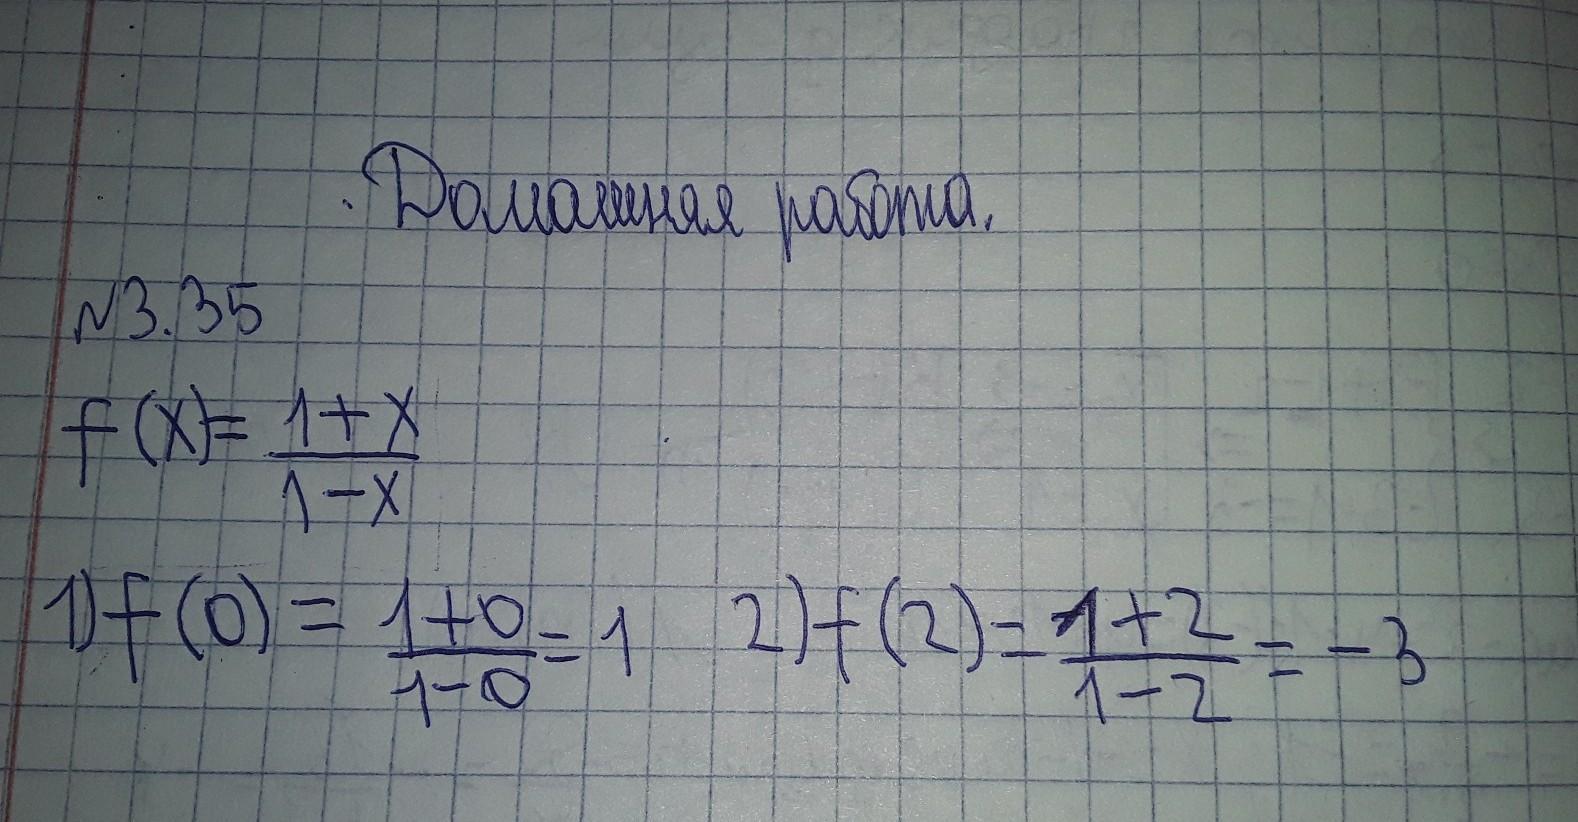 Домашняя работа.
№3.35
f(x)= \frac{1+x}{1-x}
1) f(0) = \frac{1+0}{1-0} = 1 2) f(2) = \frac{1+2}{1-2} = -3